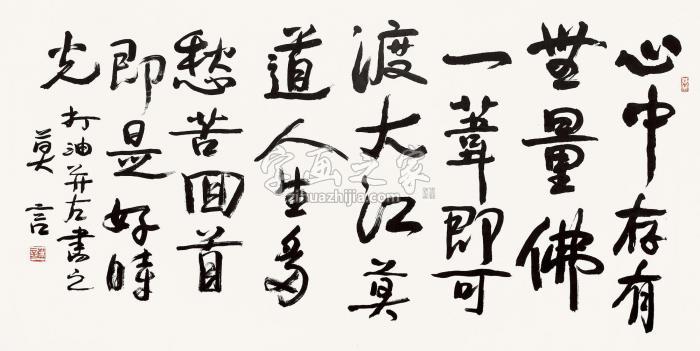 心中存有
無量佛
一葦即可
渡大江莫
道人生多
愁苦回首
即是好時
光
打油并左書之
莫言
字画之家
zihuazhijia.com